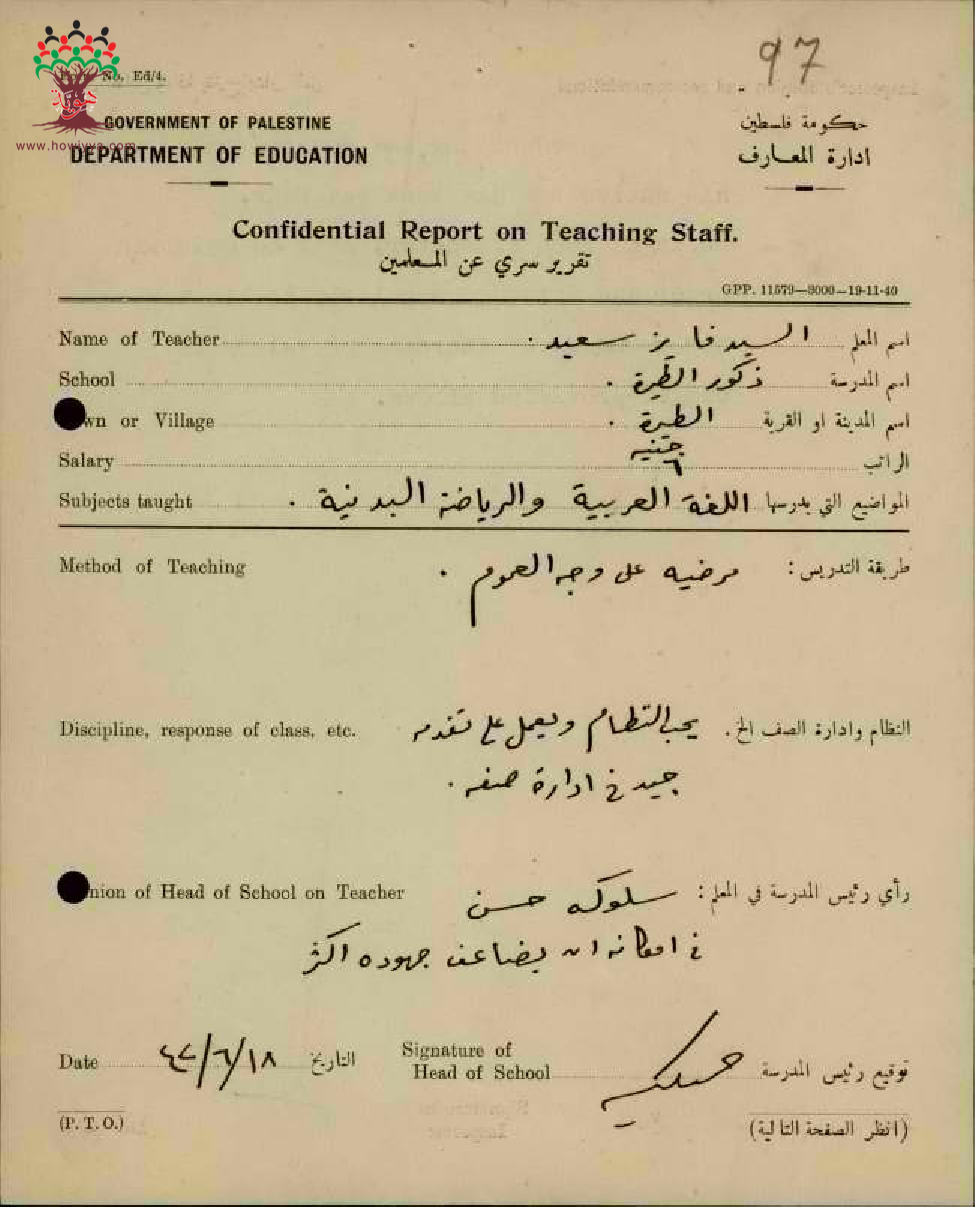 97
No. Ed/4.
هوية
www.howiyya.com
GOVERNMENT OF PALESTINE
حكومة فلسطين
DEPARTMENT OF EDUCATION
ادارة المعارف
Confidential Report on Teaching Staff.
تقرير سري عن المعلمين
GPP. 11579—3000—19-11-40
Name of Teacher السيد فايز سعيد . اسم المعلم
School ذكور الطيرة . اسم المدرسة
wn or Village الطيرة . اسم المدينة او القرية
Salary ٦ جنيه الراتب
Subjects taught اللغة العربية والرياضة البدنية . المواضيع التي يدرسها
Method of Teaching طريقة التدريس : مرضيه على وجه العموم .
Discipline, response of class, etc. النظام وادارة الصف الخ . يحب النظام ويعمل على تقدمه
جيد في ادارة صفه .
nion of Head of School on Teacher رأي رئيس المدرسة في المعلم : سلوكه حسن
في امكانه ان يضاعف جهوده اكثر
Date ٤٤/٦/١٨ التاريخ
Signature of
Head of School توقيع رئيس المدرسة
(P. T. O.)
(انظر الصفحة التالية)